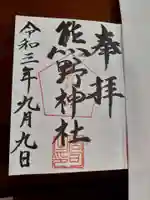 奉拝
熊野神社
令和三年九月九日